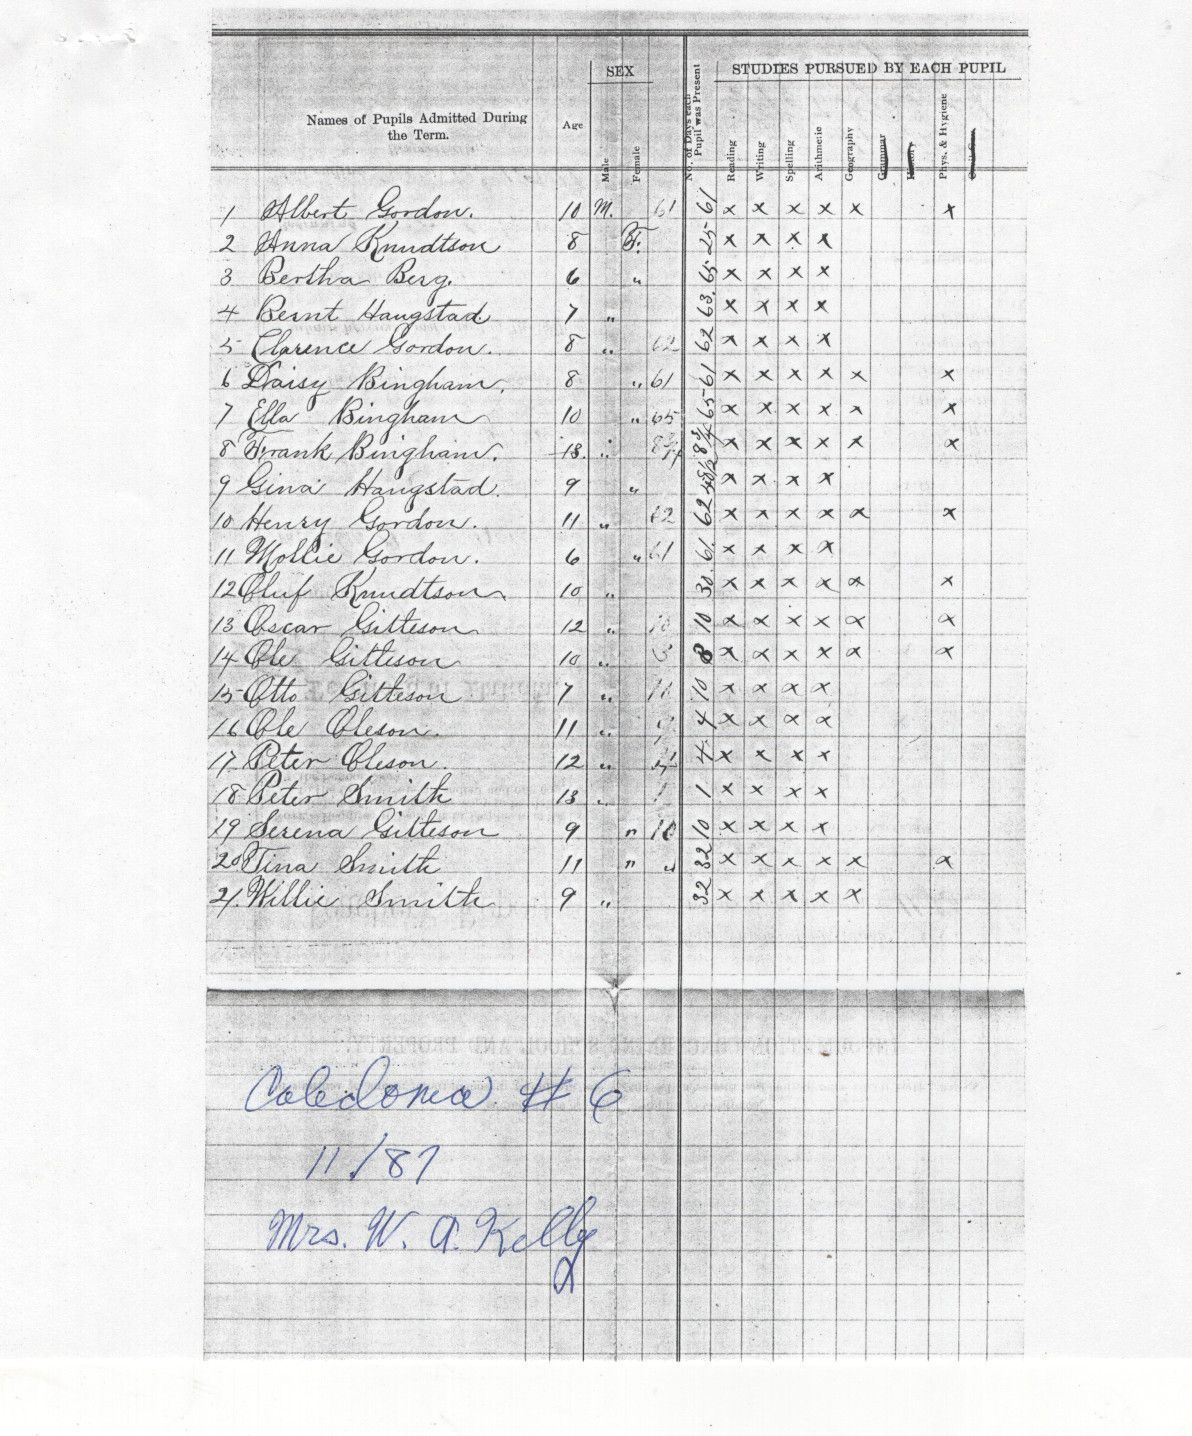 SEX
STUDIES PURSUED BY EACH PUPIL
Names of Pupils Admitted During
the Term.
Age
Male
Female
No. of Days each
Pupil was Present
Reading
Writing
Spelling
Arithmetic
Geography
Grammar
History
Phys. & Hygiene
1 Albert Gordon. 10 M. 61 61 x x x x x x
2 Anna Knudtson 8 F. 25 x x x x
3 Bertha Berg. 6 " 65 x x x x
4 Bernt Haugstad 7 " 63. x x x x
5 Clarence Gordon. 8 " 62 62 x x x x
6 Daisy Bingham. 8 " 61 61 x x x x x x
7 Ella Bingham 10 " 65 65 x x x x x x
8 Frank Bingham. 13. " x x x x x x
9 Gina Haugstad. 9 " x x x x
10 Henry Gordon. 11 " 62 62 x x x x x x
11 Mollie Gordon. 6 " 61 61. x x x x
12 Oluf Knudtson 10 " 30. x x x x x x
13 Oscar Gitteson 12 " 10 10 x x x x x x
14 Ole Gitteson 10 " 8 x x x x x x
15 Otto Gitteson 7 " 10 10 x x x x
16 Ole Oleson. 11 " 4 x x x x
17 Peter Oleson. 12 " 4. x x x x
18 Peter Smith 13 " 1 1 x x x x
19 Serena Gitteson 9 " 10 10 x x x x
20 Tina Smith 11 " " 32 x x x x x x
21. Willie Smith 9 " 32 x x x x x
Caledonia # 6
11/87
Mrs. W. A. Kelly